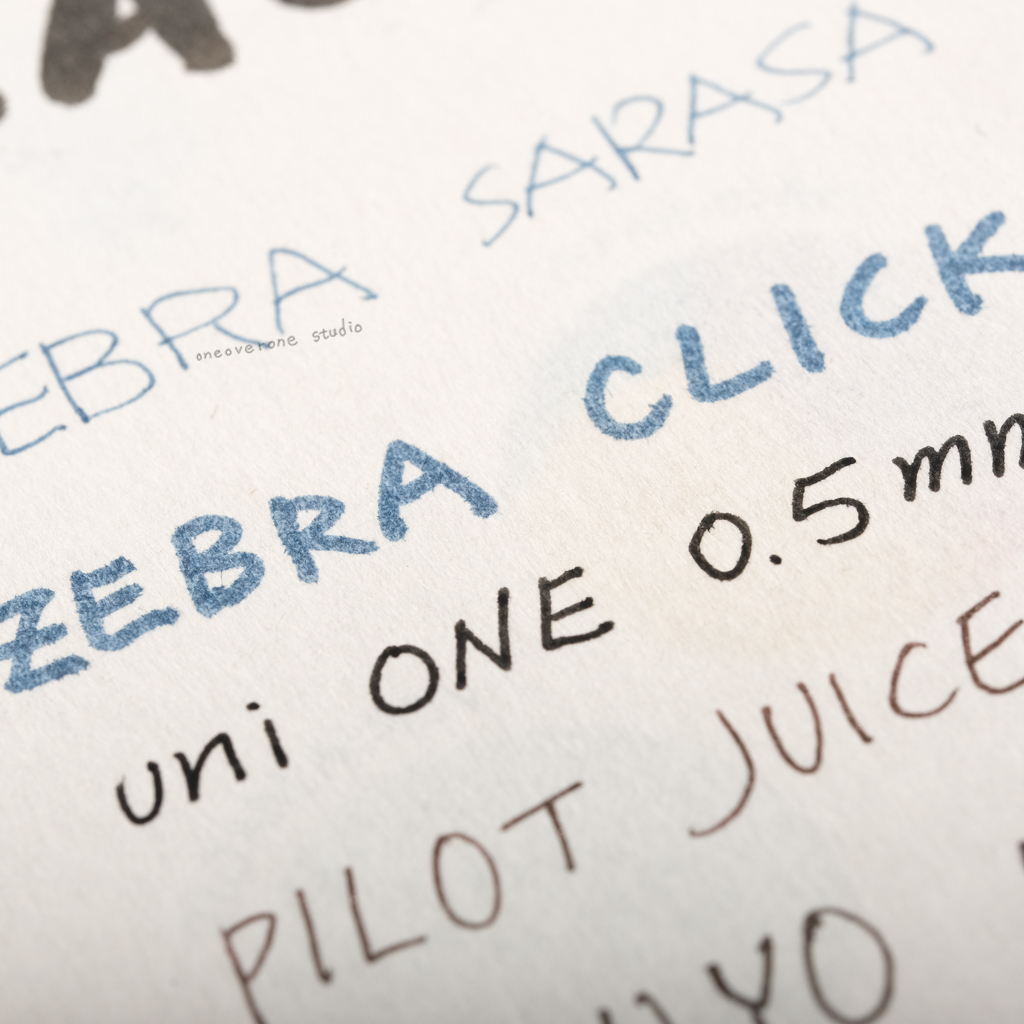 EBRA SARASA
oneoverone studio
ZEBRA CLICK
uni ONE 0.5mm
PILOT JUICE